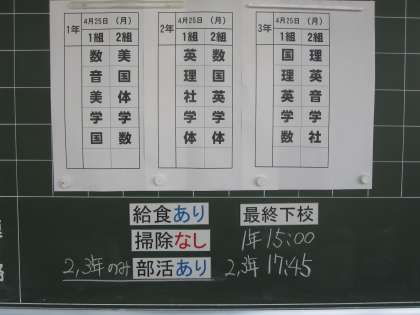 1年 4月25日 (月)
1組 2組
数 美
音 国
美 体
学 学
国 数
2年 4月25日 (月)
1組 2組
英 数
理 国
社 英
学 学
体 体
3年 4月25日 (月)
1組 2組
国 理
理 英
英 音
学 学
数 社
給食あり 最終下校
掃除なし 1年 15:00
2,3年のみ 部活あり 2,3年 17:45